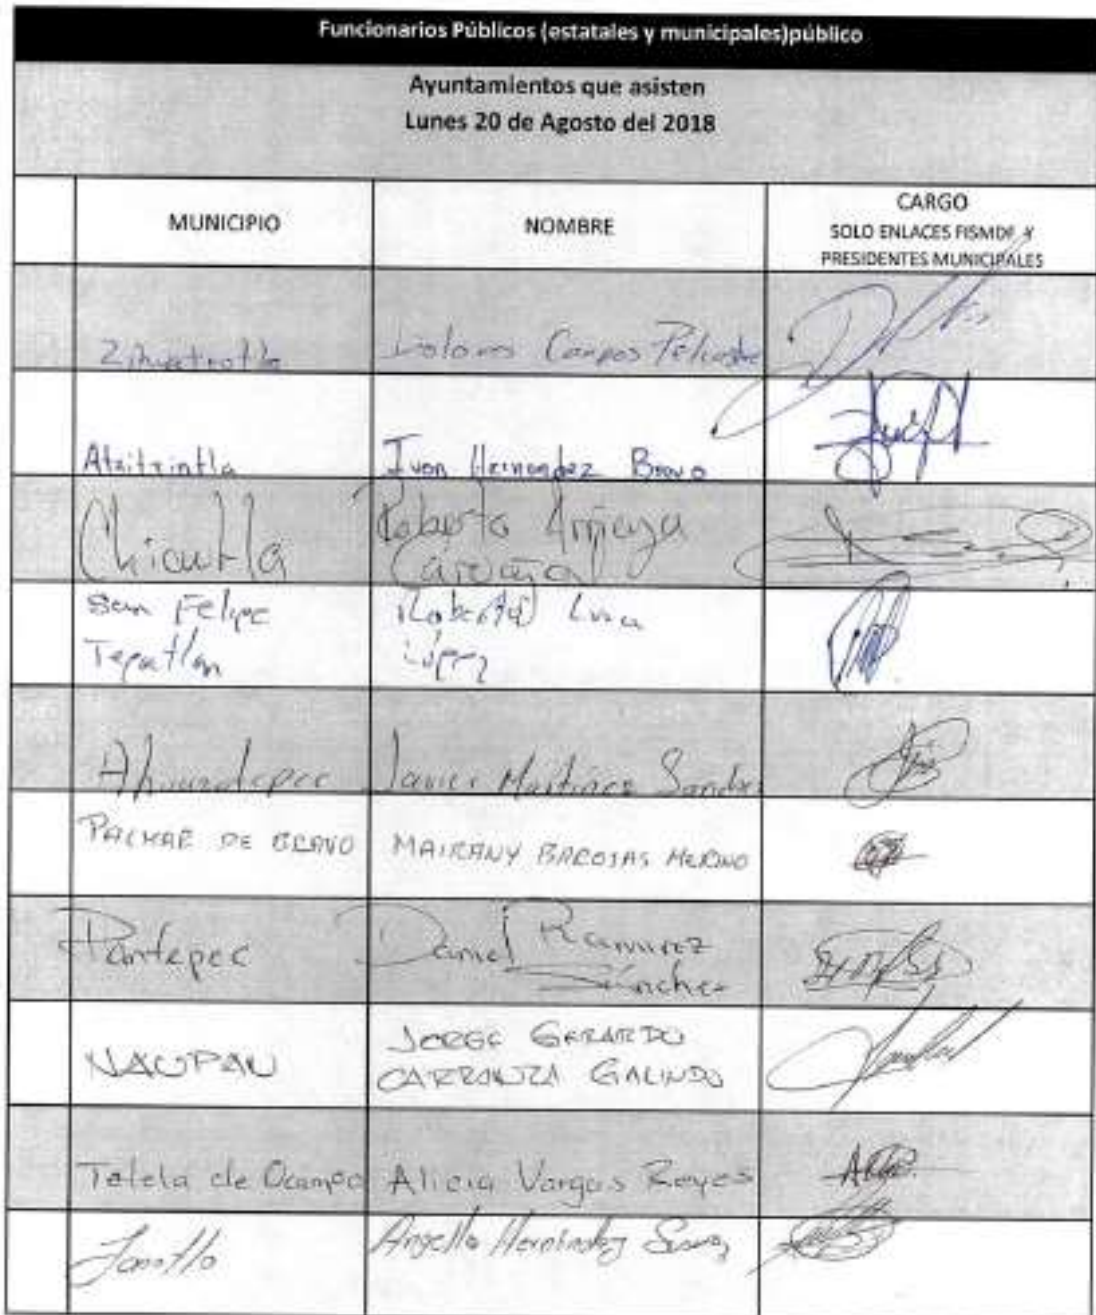 Funcionarios Públicos (estatales y municipales)público
Ayuntamientos que asisten
Lunes 20 de Agosto del 2018
MUNICIPIO
NOMBRE
CARGO
SOLO ENLACES FISMDF Y
PRESIDENTES MUNICIPALES
Dolores Campos
Atzitzintla
Ivon Hernandez Bravo
Chiautla
Roberto
San Felipe
Tepatlan
Luna
López
Javier Martínez
DE BRAVO
MAIRANY BAROJAS MERINO
Pantepec
Daniel Ramirez
Sánchez
NAUPAN
JORGE GERARDO
CARRANZA GALINDO
Tetela de Ocampo
Alicia Vargas Reyes
Hernández